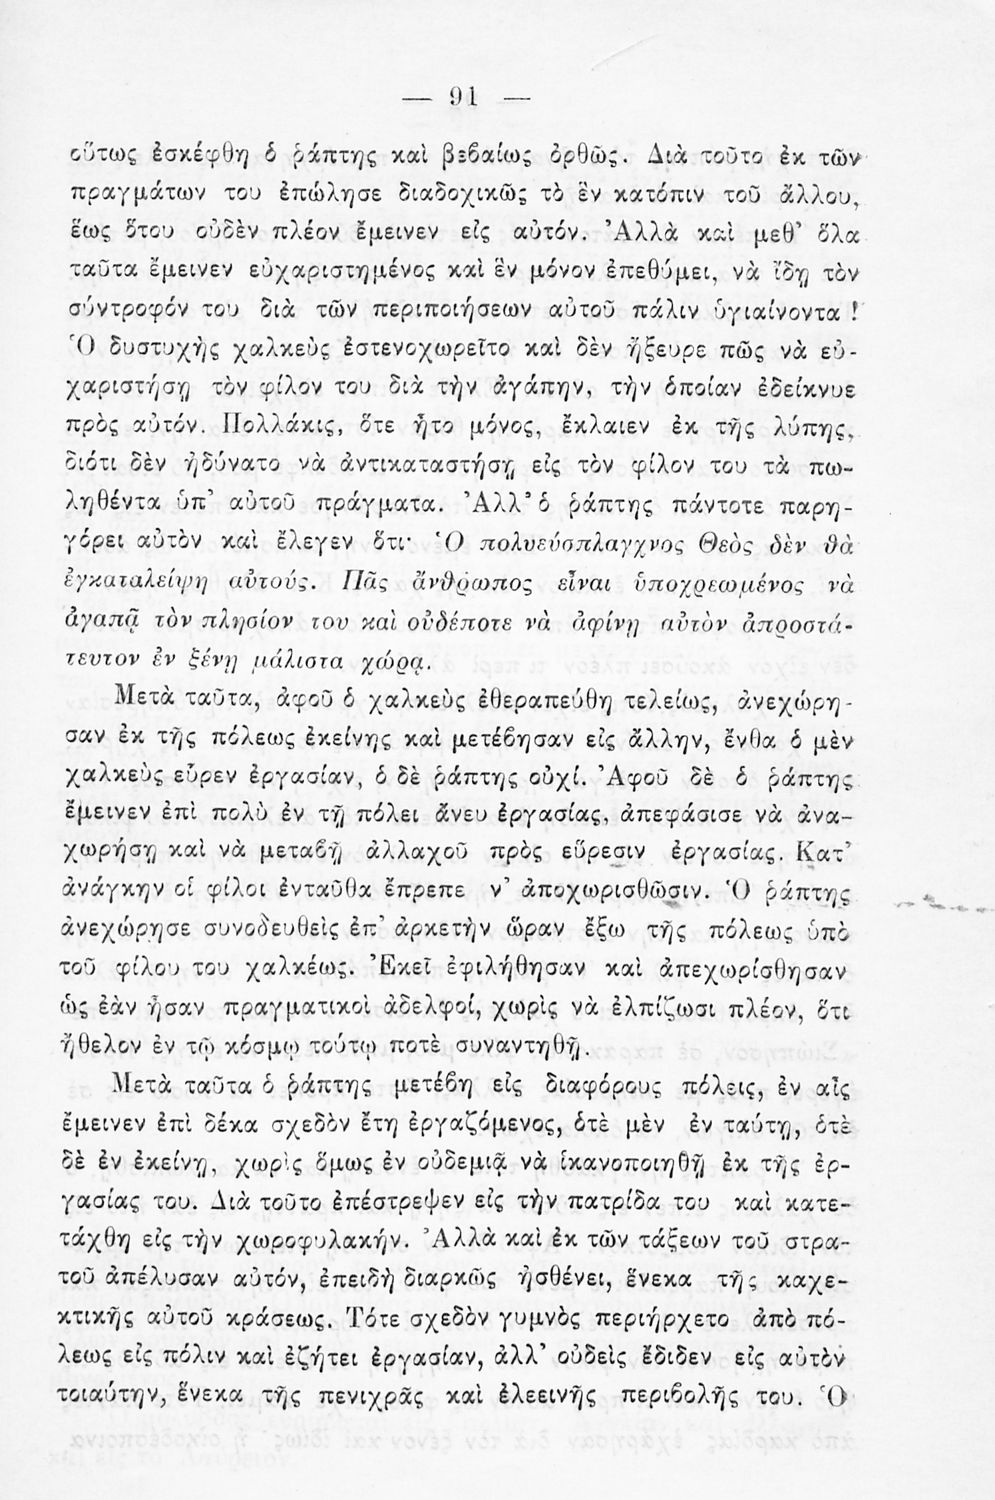 — 91 —
οὕτως ἐσκέφθη ὁ ῥάπτης καὶ βεβαίως ὀρθῶς. Διὰ τοῦτο ἐκ τῶν
πραγμάτων του ἐπώλησε διαδοχικῶς τὸ ἓν κατόπιν τοῦ ἄλλου,
ἕως ὅτου οὐδὲν πλέον ἔμεινεν εἰς αὐτόν. Ἀλλὰ καὶ μεθ’ ὅλα
ταῦτα ἔμεινεν εὐχαριστημένος καὶ ἓν μόνον ἐπεθύμει, νὰ ἴδῃ τὸν
σύντροφόν του διὰ τῶν περιποιήσεων αὐτοῦ πάλιν ὑγιαίνοντα !
Ὁ δυστυχὴς χαλκεὺς ἐστενοχωρεῖτο καὶ δὲν ἤξευρε πῶς νὰ εὐ-
χαριστήσῃ τὸν φίλον του διὰ τὴν ἀγάπην, τὴν ὁποίαν ἐδείκνυε
πρὸς αὐτόν. Πολλάκις, ὅτε ἦτο μόνος, ἔκλαιεν ἐκ τῆς λύπης,
διότι δὲν ἠδύνατο νὰ ἀντικαταστήσῃ εἰς τὸν φίλον του τὰ πω-
ληθέντα ὑπ’ αὐτοῦ πράγματα. Ἀλλ’ ὁ ῥάπτης πάντοτε παρη-
γόρει αὐτὸν καὶ ἔλεγεν ὅτι· Ὁ πολυεύσπλαγχνος Θεὸς δὲν θὰ
ἐγκαταλείψῃ αὐτούς. Πᾶς ἄνθρωπος εἶναι ὑποχρεωμένος νὰ
ἀγαπᾷ τὸν πλησίον του καὶ οὐδέποτε νὰ ἀφίνῃ αὐτὸν ἀπροστά-
τευτον ἐν ξένῃ μάλιστα χώρᾳ.
Μετὰ ταῦτα, ἀφοῦ ὁ χαλκεὺς ἐθεραπεύθη τελείως, ἀνεχώρη-
σαν ἐκ τῆς πόλεως ἐκείνης καὶ μετέβησαν εἰς ἄλλην, ἔνθα ὁ μὲν
χαλκεὺς εὗρεν ἐργασίαν, ὁ δὲ ῥάπτης οὐχί. Ἀφοῦ δὲ ὁ ῥάπτης
ἔμεινεν ἐπὶ πολὺ ἐν τῇ πόλει ἄνευ ἐργασίας, ἀπεφάσισε νὰ ἀνα-
χωρήσῃ καὶ νὰ μεταβῇ ἀλλαχοῦ πρὸς εὕρεσιν ἐργασίας. Κατ’
ἀνάγκην οἱ φίλοι ἐνταῦθα ἔπρεπε ν’ ἀποχωρισθῶσιν. Ὁ ῥάπτης
ἀνεχώρησε συνοδευθεὶς ἐπ’ ἀρκετὴν ὥραν ἔξω τῆς πόλεως ὑπὸ
τοῦ φίλου του χαλκέως. Ἐκεῖ ἐφιλήθησαν καὶ ἀπεχωρίσθησαν
ὡς ἐὰν ἦσαν πραγματικοὶ ἀδελφοί, χωρὶς νὰ ἐλπίζωσι πλέον, ὅτι
ἤθελον ἐν τῷ κόσμῳ τούτῳ ποτὲ συναντηθῇ.
Μετὰ ταῦτα ὁ ῥάπτης μετέβη εἰς διαφόρους πόλεις, ἐν αἷς
ἔμεινεν ἐπὶ δέκα σχεδὸν ἔτη ἐργαζόμενος, ὁτὲ μὲν ἐν ταύτῃ, ὁτὲ
δὲ ἐν ἐκείνῃ, χωρὶς ὅμως ἐν οὐδεμιᾷ νὰ ἱκανοποιηθῇ ἐκ τῆς ἐρ-
γασίας του. Διὰ τοῦτο ἐπέστρεψεν εἰς τὴν πατρίδα του καὶ κατε-
τάχθη εἰς τὴν χωροφυλακήν. Ἀλλὰ καὶ ἐκ τῶν τάξεων τοῦ στρα-
τοῦ ἀπέλυσαν αὐτόν, ἐπειδὴ διαρκῶς ἠσθένει, ἕνεκα τῆς καχε-
κτικῆς αὐτοῦ κράσεως. Τότε σχεδὸν γυμνὸς περιήρχετο ἀπὸ πό-
λεως εἰς πόλιν καὶ ἐζήτει ἐργασίαν, ἀλλ’ οὐδεὶς ἔδιδεν εἰς αὐτὸν
τοιαύτην, ἕνεκα τῆς πενιχρᾶς καὶ ἐλεεινῆς περιβολῆς του. Ὁ